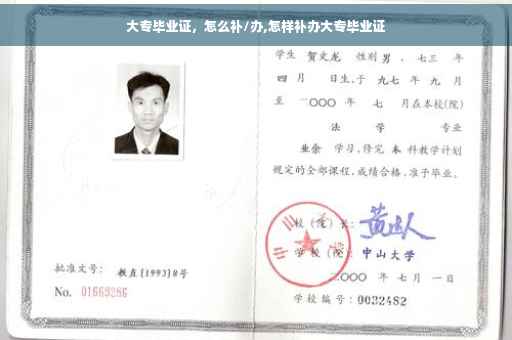 大专毕业证，怎么补/办,怎样补办大专毕业证
学生 贺文龙 性别 男 、七三 年
四 月 日生,于 九七 年 九 月
至 二〇〇〇 年 七 月在本校(院)
法 学 专业
业余 学习,修完 本 科教学计划
规定的全部课程,成绩合格,准予毕业。
校（院）长：
学校（院）：中山大学
二〇〇〇 年 七 月 一 日
学校编号：0032482
批准文号： 教直[1993]8号
No. 01663286